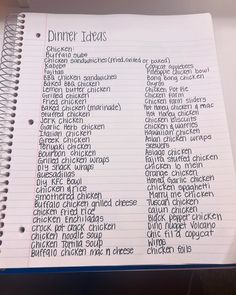 Dinner Ideas
Chicken:
Buffalo subs
Chicken sandwiches (fried, grilled or baked)
Kabobs
Fajitas
BBQ chicken sandwiches
Baked BBQ chicken
Lemon butter chicken
Grilled chicken
Fried chicken
Baked chicken (marinade)
Stuffed chicken
Jerk chicken
Garlic herb chicken
Italian chicken
Greek chicken
Teriyaki chicken
Bourbon chicken
Grilled chicken wraps
DIY snack wraps
Quesadillas
DIY KFC Bowl
Chicken & rice
Smothered chicken
Buffalo chicken grilled cheese
Chicken fried rice
Chicken Enchiladas
Crock pot crack chicken
Chicken noodle soup
Chicken Tortilla soup
Buffalo chicken mac n cheese
Copycat
Pineapple chicken bowl
Bang Bang chicken
Chicken Pot Pie
Chicken Parm
Chicken Parm sliders
Hot honey chicken & mac
Hot honey chicken
Chicken biscuits
Chicken & waffles
Hawaiian chicken
Asian chicken wraps
Skewers
Asiago chicken
Fajita stuffed chicken
Chicken lo mein
Orange chicken
Honey garlic chicken
Chicken spaghetti
Marry me chicken
Tuscan chicken
Cajun chicken
Black pepper chicken
Dino nugget
Chic fil a copycat
Wings
Chicken